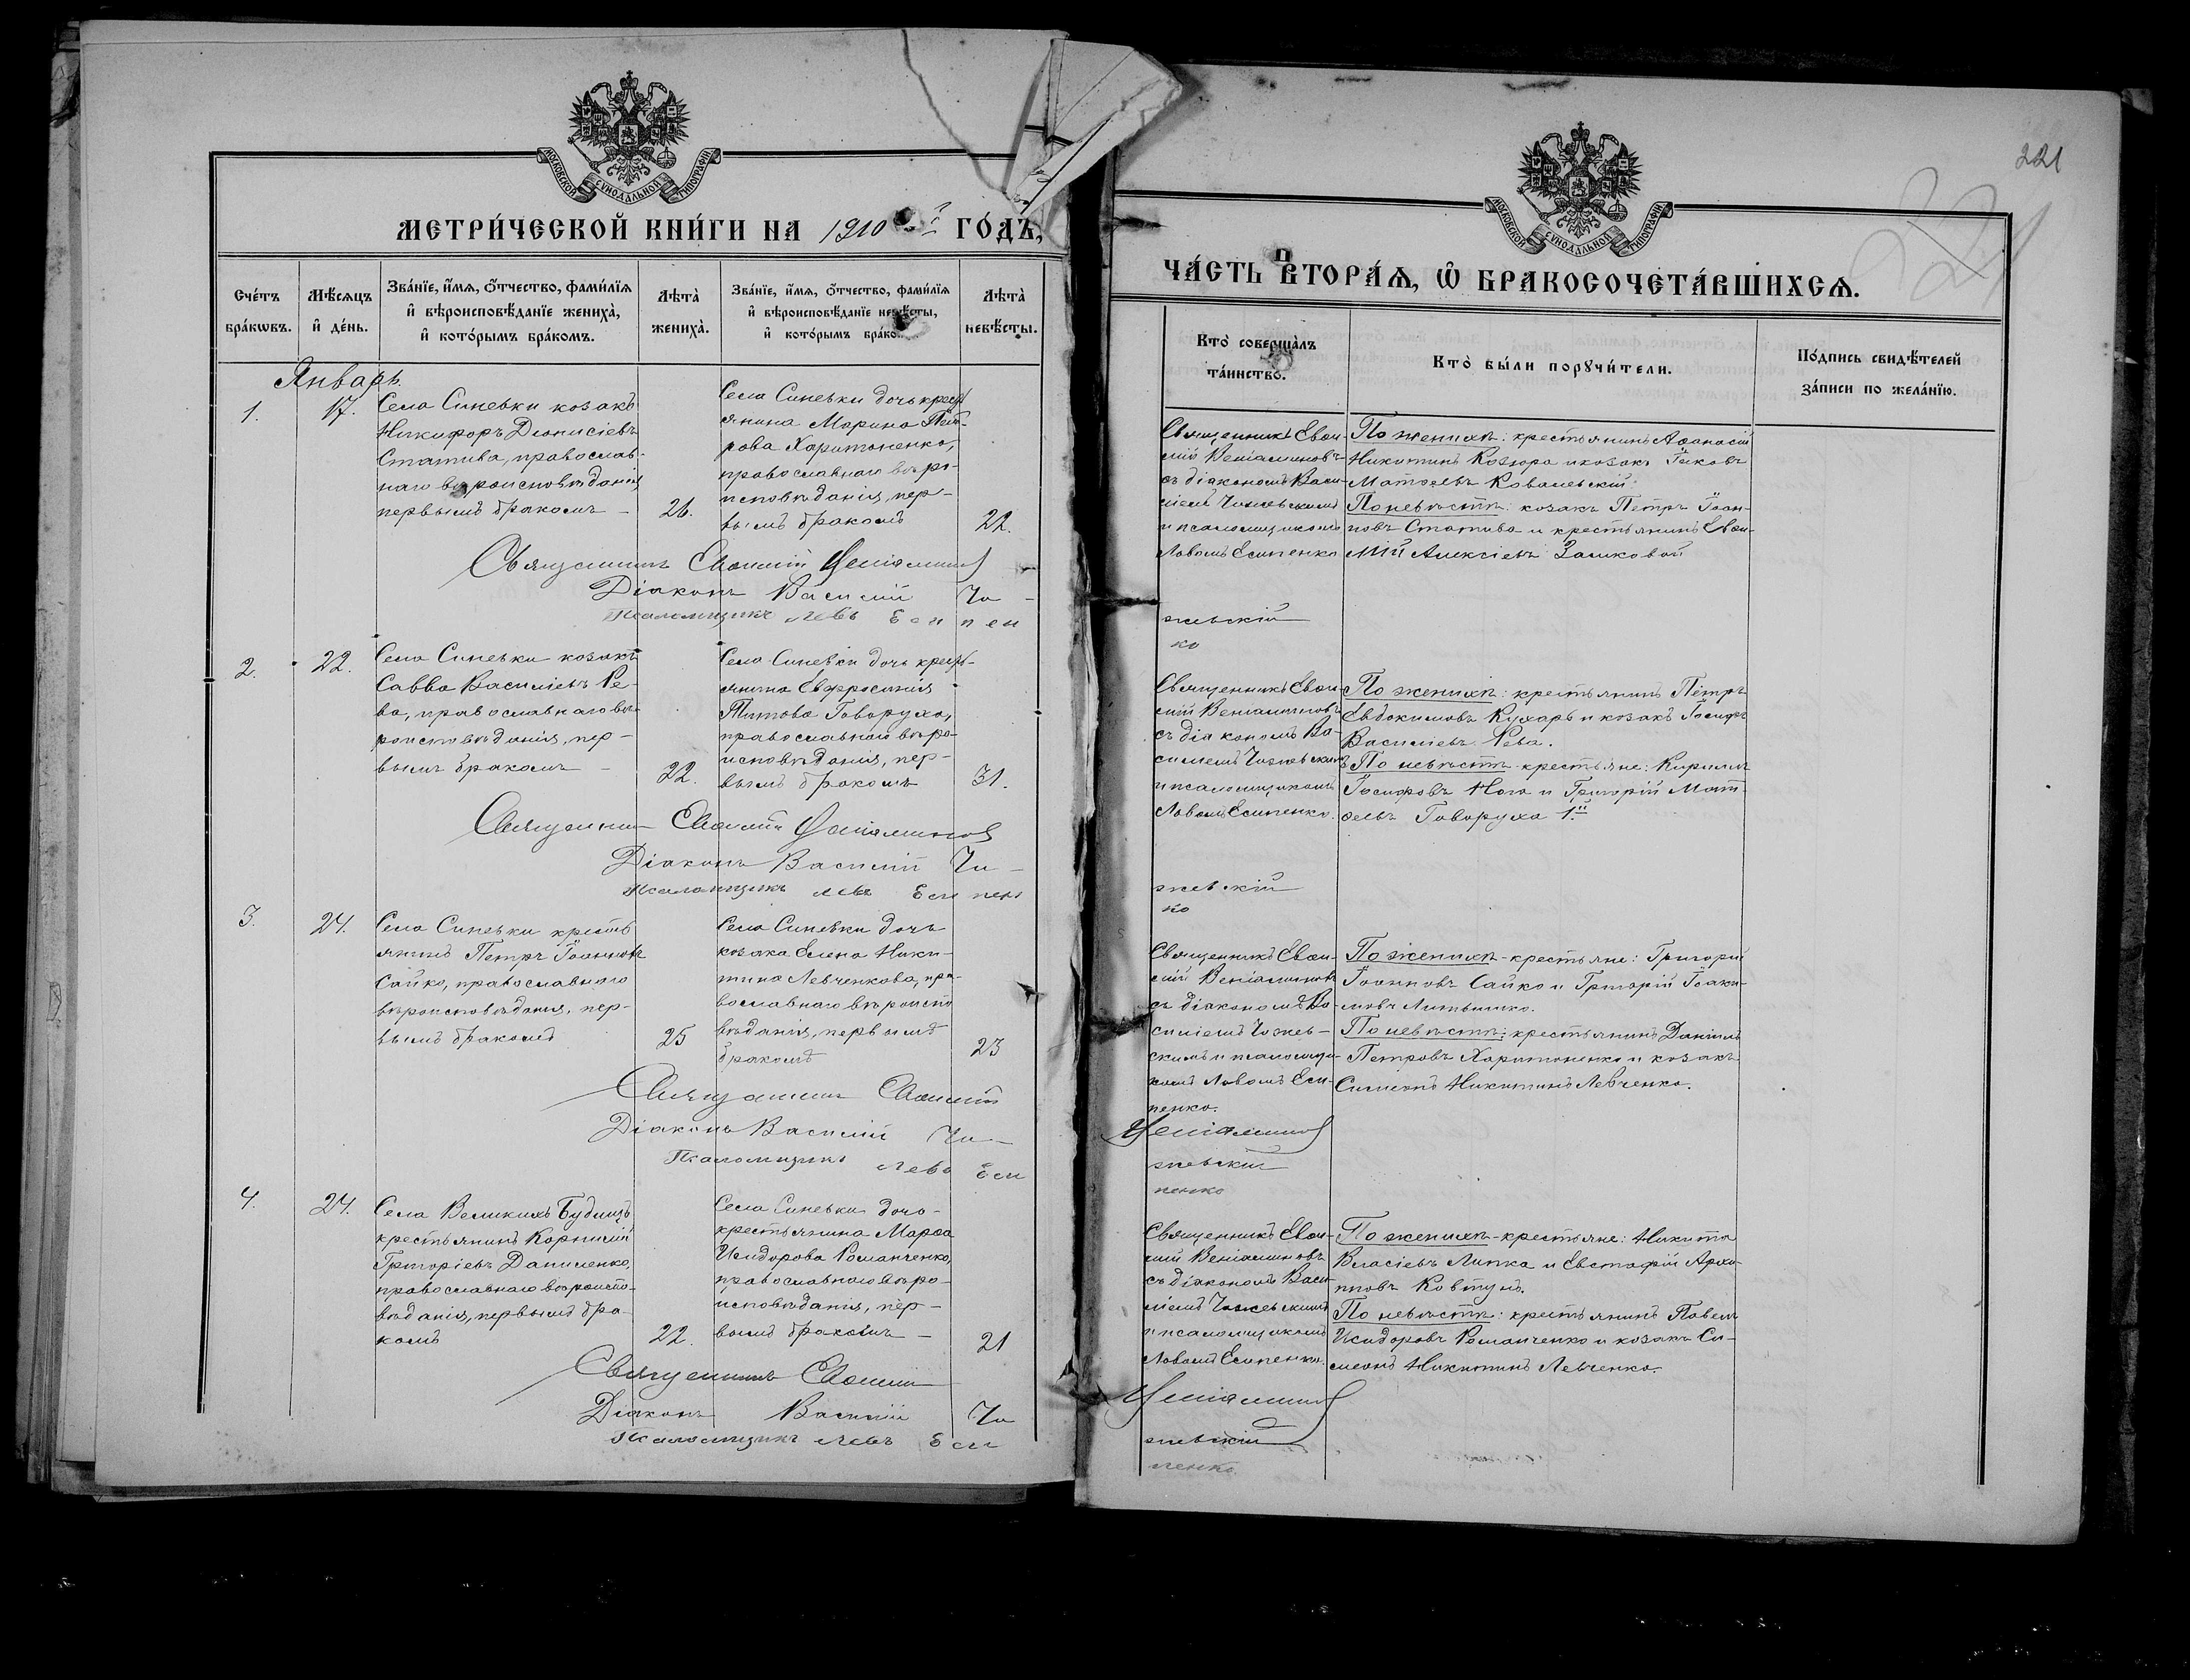 МОСКОВСКОЙ СѴНОДАЛЬНОЙ ТИПОГРАФІИ
МЕТРИ́ЧЕСКОЙ КНИ́ГИ НА 1910 ГО́ДЪ,
Сче́тъ бра́кωвъ.
Мѣ́сяцъ и҆ де́нь.
Зва́нїе, и҆́мѧ, ѻ҆́тчество, фами́лїѧ
и҆ вѣроисповѣ́данїе жениха̀,
и҆ кото́рымъ бра́комъ.
Лѣта̀ жениха̀.
Зва́нїе, и҆́мѧ, ѻ҆́тчество, фами́лїѧ
и҆ вѣроисповѣ́данїе невѣ́сты,
и҆ кото́рымъ бра́ко
Лѣта̀ невѣ́сты.
Январь.
1.
17.
Села Синевки козакъ
Никифоръ Діонисіевъ
Статива, православ-
наго вѣроисповѣданія,
первымъ бракомъ –
26.
Села Синевки дочь крест
янина Марина Пет-
рова Харитоненко,
православнаго вѣро-
исповѣданія, пер-
вымъ бракомъ
22.
Священникъ Евѳимій Веніаминов
Діаконъ Василій Чи-
Псаломщикъ Левъ Есипен
2.
22.
Села Синевки козакъ
Савва Василіевъ Ре-
ва, православнаго вѣ-
роисповѣданія, пер-
вымъ бракомъ –
22.
Села Синевки дочь крест-
янина Евфросинія
Титова Говоруха,
православнаго вѣро-
исповѣданія, пер-
вымъ бракомъ
31.
Священник Евѳимій Веніаминов
Діаконъ Василій Чи-
Псаломщикъ Левъ Есипен
3.
24.
Села Синевки кресть
янинъ Петръ Іоанновъ
Сайко, православнаго
вѣроисповѣданія, пер-
вымъ бракомъ
25
Села Синевки дочь
козака Елена Ники-
тина Левченкова, пра-
вославнаго вѣроиспо
вѣданія, первымъ
бракомъ
23
Священник Евѳимій
Діаконъ Василій Чи-
Псаломщикъ Левъ Еси
4.
24.
Села Великихъ Будищъ
крестьянинъ Корнилій
Григоріевъ Даниленко,
православнаго вѣроиспо-
вѣданія, первымъ бра-
комъ
22.
Села Синевки дочь-
крестьянина Марѳа
Исидорова Романченко,
православнаго вѣро-
исповѣданія, пер-
вымъ бракомъ –
21
Священникъ Евѳимій
Діаконъ Василій Чи
Псаломщикъ Левъ Еси
221
МОСКОВСКОЙ СѴНОДАЛЬНОЙ ТИПОГРАФІИ
ЧА́СТЬ ВТОРА́Ѧ, Ѡ҆ БРАКОСОЧЕТА́ВШИХСѦ.
Кто̀ соверша́лъ та́инство.
Кто̀ бы́ли порꙋчи́тели.
По́дпись свидѣ́телей
за́писи по жела́нїю.
Священникъ Евѳи-
мій Веніаминовъ
съ діакономъ Васи-
ліемъ Чижевскимъ
и псаломщикомъ
Львомъ Есипенко
По женихѣ: крестьянинъ Аѳанасій
Никитинъ Козюра и козакъ Іаковъ
Матѳеевъ Ковалевскій.
По невѣстѣ: козакъ Петръ Іоан-
новъ Статива и крестьянинъ Евѳи-
мій Алексіевъ Замковой
жевскій
ко
Священникъ Евѳи-
мій Веніаминовъ
съ діакономъ Ва-
силіемъ Чижевским
и псаломщикомъ
Львомъ Есипенко.
По женихѣ: крестьянинъ Петръ
Евдокимовъ Кухарь и козакъ Іосифъ
Василіевъ Рева.
По невѣстѣ - крестьяне: Кириллъ
Іосифовъ Нога и Григорій Мат-
ѳеевъ Говоруха 1й
жевскій
ко
Священникъ Евѳи-
мій Веніаминовъ
съ діакономъ Ва-
силіемъ Чижев-
скимъ и псаломщи-
комъ Львомъ Еси-
пенко.
По женихѣ - крестьяне: Григорій
Іоанновъ Сайко и Григорій Іоаки-
мовъ Литвишко.
По невѣстѣ: крестьянинъ Даніилъ
Петровъ Харитоненко и козакъ
Симеонъ Никитинъ Левченко.
Веніаминов
жевскій
пенко
Священникъ Евѳи-
мій Веніаминовъ
съ діакономъ Васи-
ліемъ Чижевскимъ
и псаломщикомъ
Львомъ Есипенко.
По женихѣ - крестьяне: Никита
Власіевъ Липка и Евстафій Архи-
пповъ Ковтунъ.
По невѣстѣ: крестьянинъ Павелъ
Исидоровъ Романченко и козакъ Си-
меонъ Никитинъ Левченко.
Веніаминов
жевскій
пенко